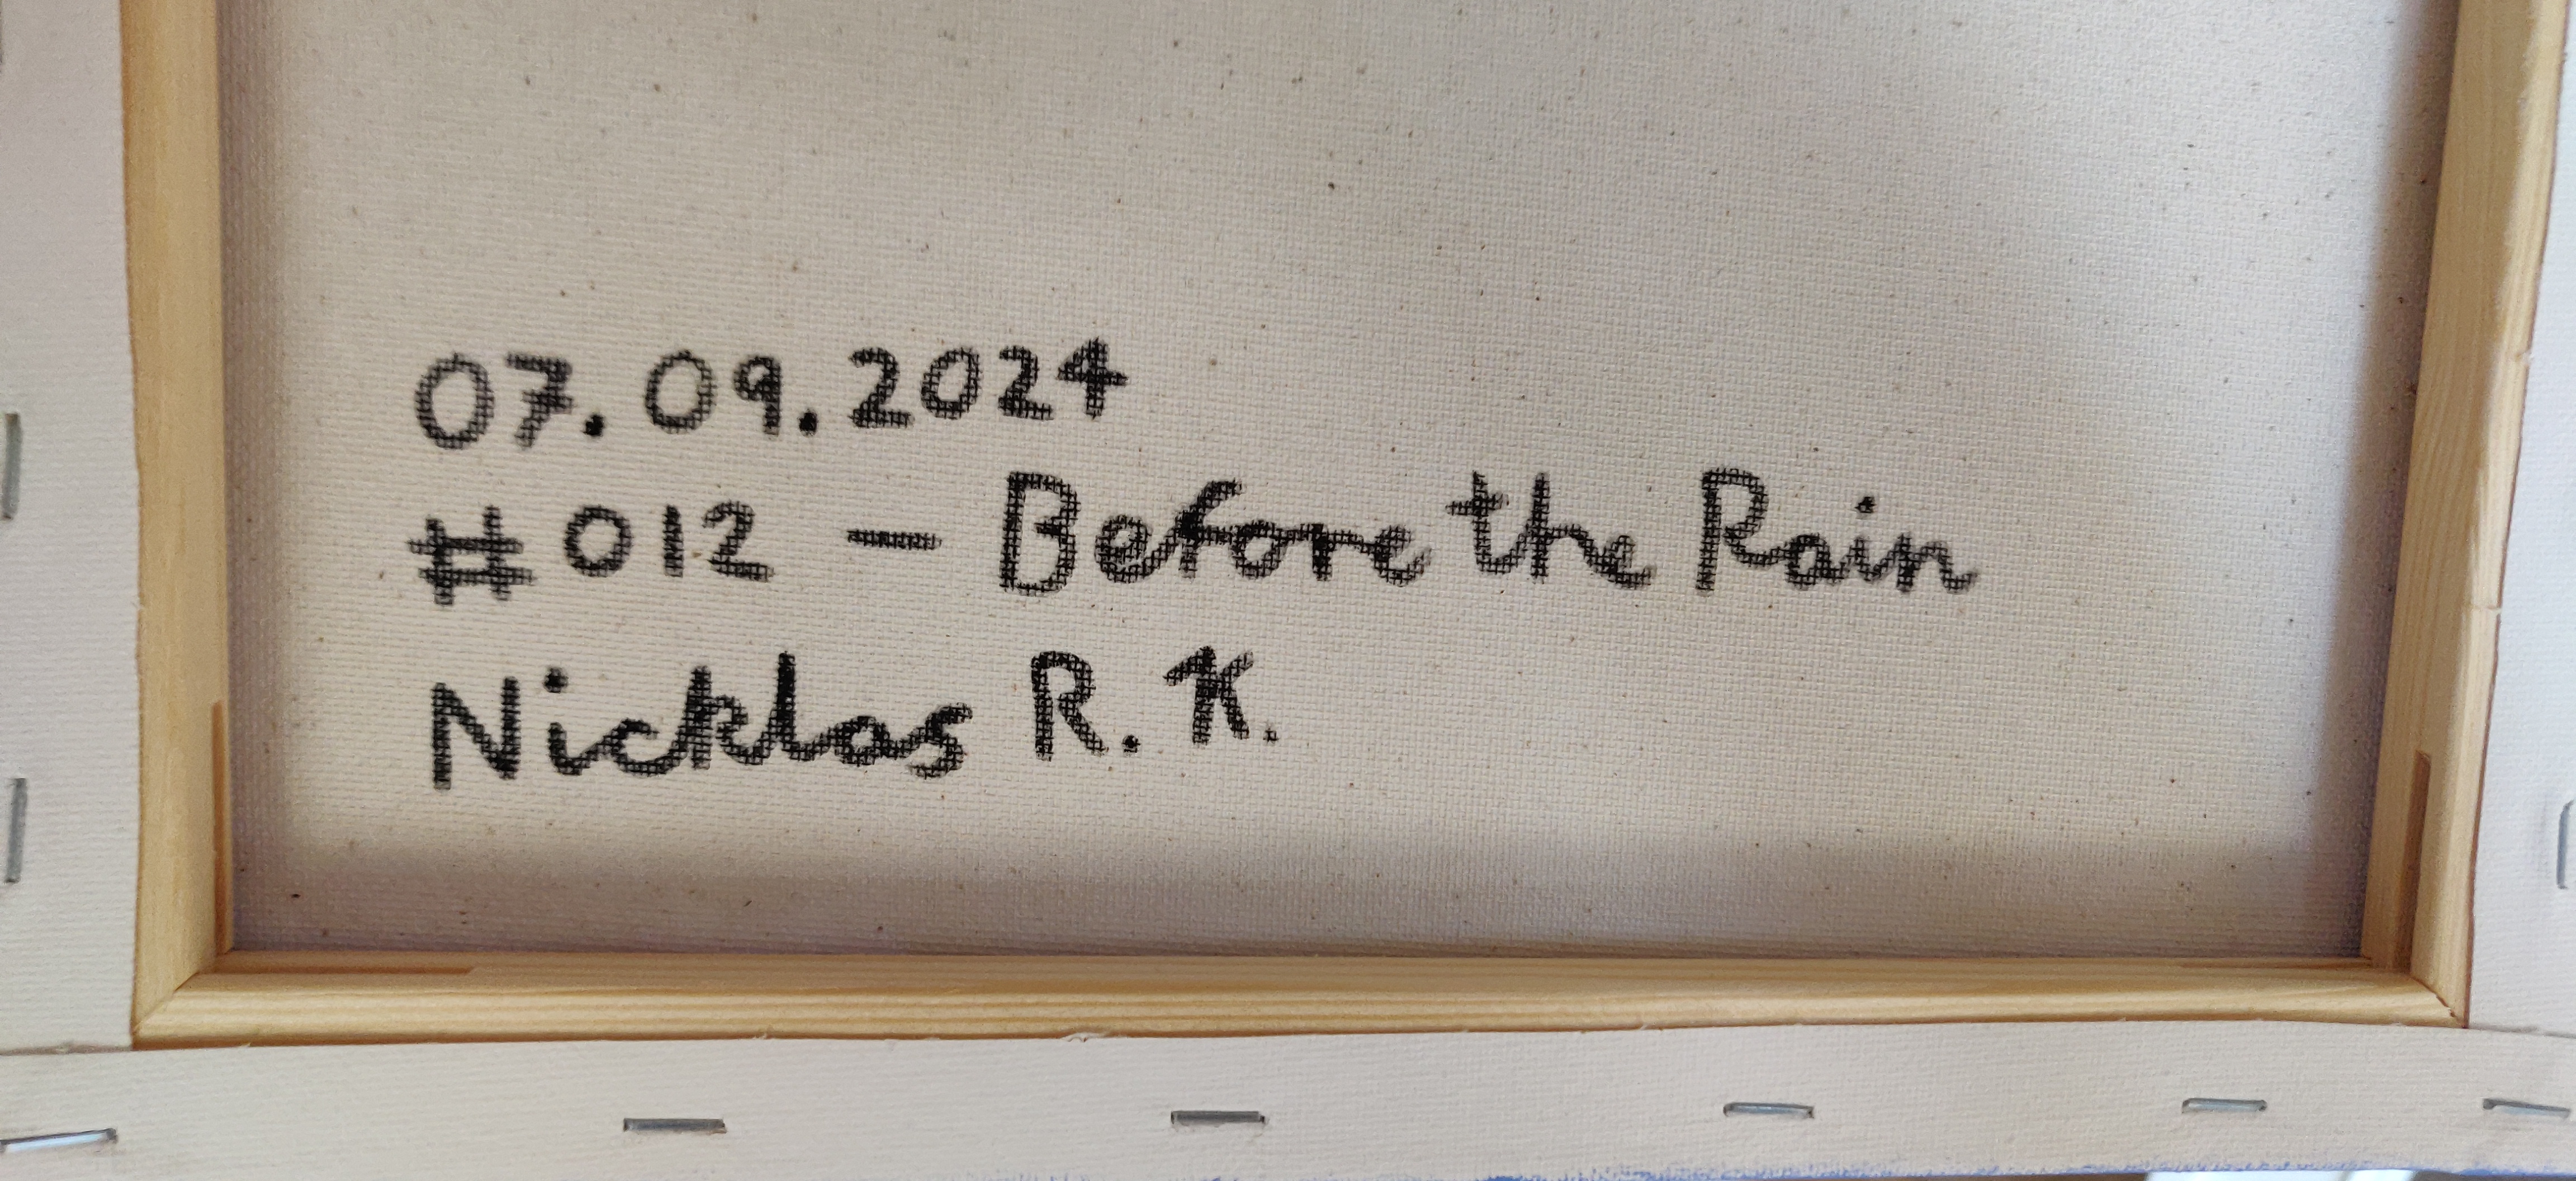 07.09.2024
#012 — Before the Rain
Nicklas R. K.